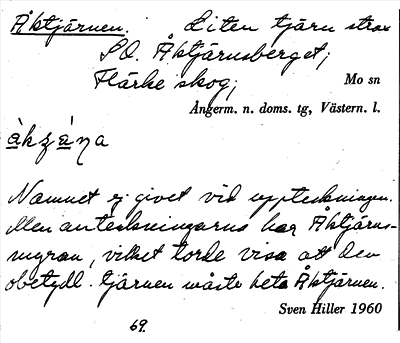 Åktjärnen. Liten tjärn strax
S.O. Åktjärnsberget;
Flärke skog;
Mo sn
Ångerm. n. doms. tg, Västern. l.
Namnet ej givet vid uppteckningen.
Men anteckningarna har Åktjärns-
myran, vilket torde visa att den
obetydl. tjärnen måste heta Åktjärnen.
Sven Hiller 1960
69.